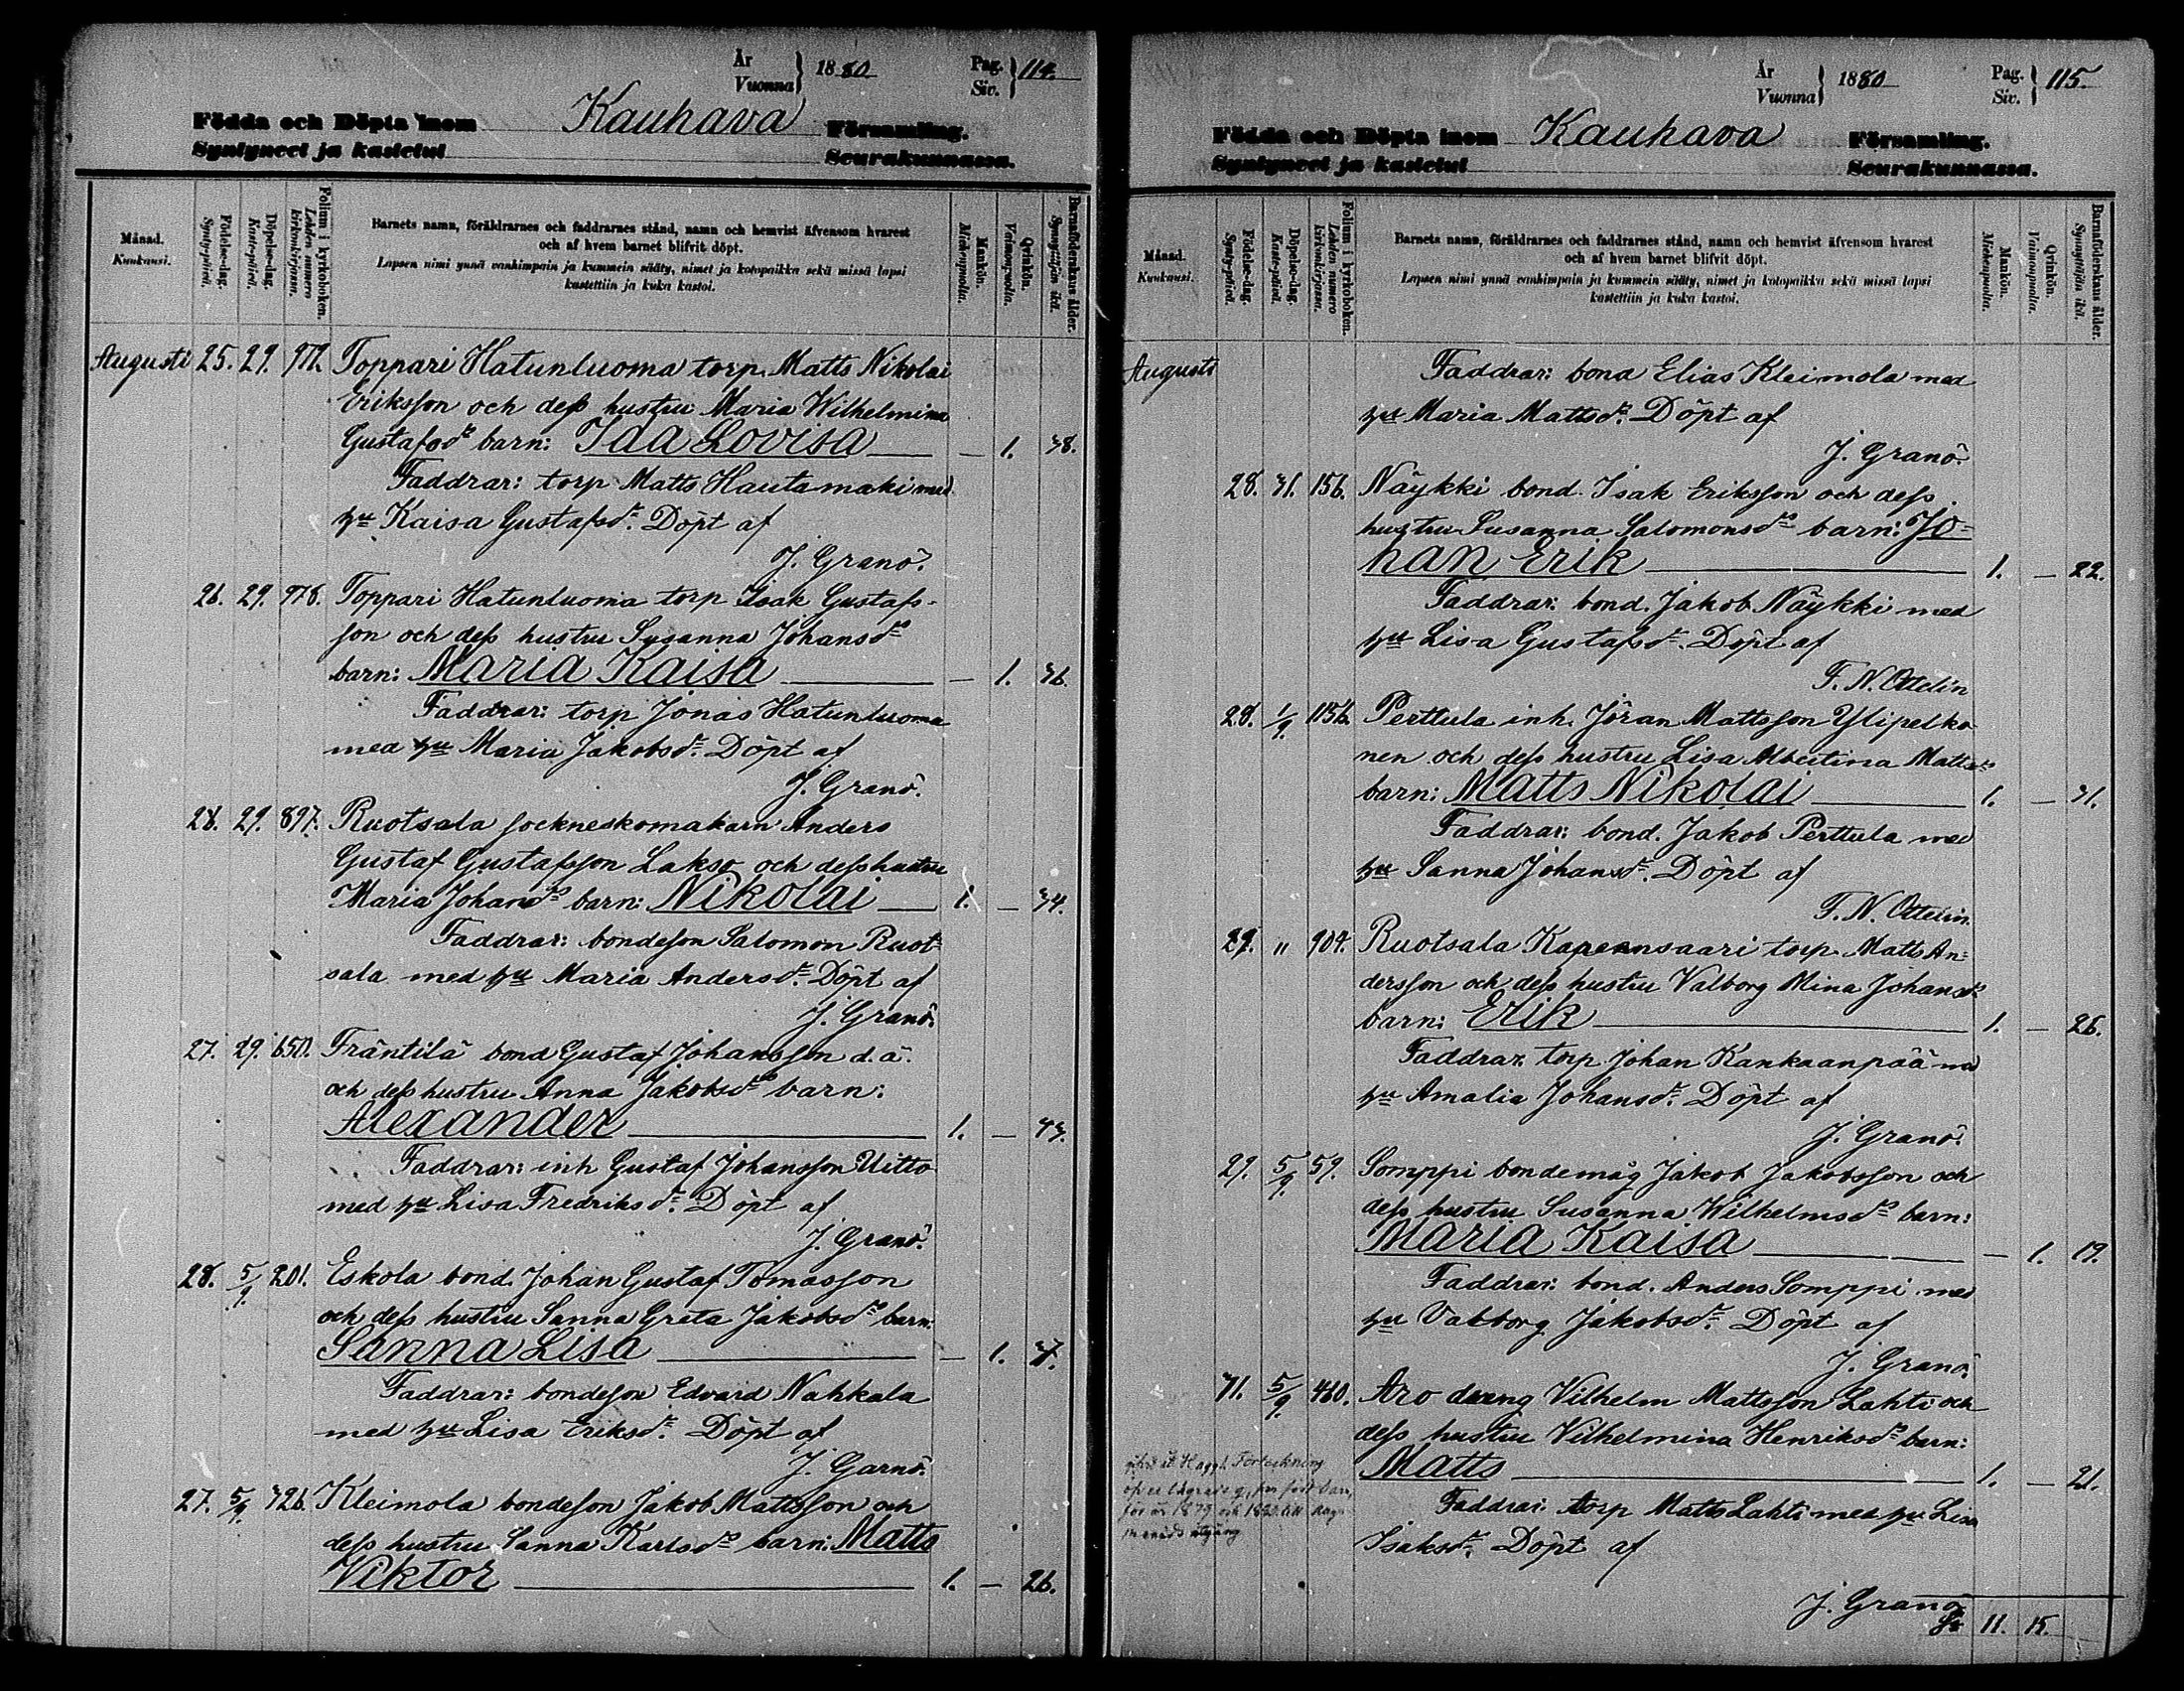 År
Vuonna } 1880
Pag.
Siv. } 114.
Födda och Döpta inom Kauhava Församling.
Syntyneet ja kastetut Seurakunnassa.
Månad.
Kuukausi.
Födelse-dag.
Synty-päivä.
Döpelse-dag.
Kaste-päivä.
Folium i kyrkoboken.
Lehden numero kirkonkirjassa.
Barnets namn, föräldrarnes och faddrarnes stånd, namn och hemvist äfvensom hvarest
och af hvem barnet blifvit döpt.
Lapsen nimi ynnä vanhimpain ja kummein sääty, nimet ja kotopaikka sekä missä lapsi
kastettiin ja kuka kastoi.
Mankön.
Miehenpuolia.
Qvinkön.
Vaimonpuolia.
Barnaföderskans ålder.
Synnyttäjän ikä.
Augusti 25. 29. Toppari Hatunluoma torp. Matts Nikolai
Eriksson och dess hustru Maria Wilhelmina
Gustafsds barn: Ida Lovisa — 1. 38.
Faddrar: torp Matts Hautamäki med
hu Kaisa Gustafsdr. Döpt af
J. Granö.
26. 29. 978. Toppari Hatunluoma torp Isak Gustafs-
son och dess hustru Susanna Johansds
barn: Maria Kaisa — 1. 36.
Faddrar: torp Jonas Hatunluoma
med hu Maria Jakobsdr. Döpt af
J. Granö.
28. 29. 897. Ruotsala sockneskomakarn Anders
Gustaf Gustafsson Lakso och dess hustru
Maria Johansds barn: Nikolai 1. — 34.
Faddrar: bondeson Salomon Ruot-
sala med hu Maria Andersdr. Döpt af
J. Granö.
27. 29. 650. Fräntilä bond Gustaf Johansson d.ä.
och dess hustru Anna Jakobsds barn:
Alexander 1. — 43.
Faddrar: inh Gustaf Johansson Uitto
med hu Lisa Fredriksdr. Döpt af
J. Granö.
28. 5/9. 201. Eskola bond. Johan Gustaf Tomasson
och dess hustru Sanna Greta Jakobsds barn:
Sanna Lisa — 1.
Faddrar: bondeson Edvard Nahkala
med hu Lisa Eriksdr. Döpt af
J. Garnö.
27. 5/9. 326. Kleimola bondeson Jakob Mattsson och
dess hustru Sanna Karlsds barn: Matts
Viktor 1. — 26.
År
Vuonna } 1880
Pag.
Siv. } 115.
Födda och Döpta inom Kauhava Församling.
Syntyneet ja kastetut Seurakunnassa.
Månad.
Kuukausi.
Födelse-dag.
Synty-päivä.
Döpelse-dag.
Kaste-päivä.
Folium i kyrkoboken.
Lehden numero kirkonkirjassa.
Barnets namn, föräldrarnes och faddrarnes stånd, namn och hemvist äfvensom hvarest
och af hvem barnet blifvit döpt.
Lapsen nimi ynnä vanhimpain ja kummein sääty, nimet ja kotopaikka sekä missä lapsi
kastettiin ja kuka kastoi.
Mankön.
Miehenpuolia.
Qvinkön.
Vaimonpuolia.
Barnaföderskans ålder.
Synnyttäjän ikä.
Augusti Faddrar: bond Elias Kleimola med
hu Maria Mattsdr. Döpt af
J. Granö.
28. 31. 156. Näykki bond. Isak Eriksson och dess
hustru Susanna Salomonsds barn: Jo-
han Erik 1. — 22.
Faddrar: bond. Jakob Näykki med
hu Lisa Gustafsdr. Döpt af
F. N. Ottelin
28. 1/9. 1156. Perttula inh. Jöran Mattsson Ylipelko
nen och dess hustru Lisa Albertina Mattsds
barn: Matts Nikolai 1. — 31.
Faddrar: bond. Jakob Perttula med
hu Sanna Johansdr. Döpt af
F. N. Ottelin.
29. " 904. Ruotsala torp. Matts An-
dersson och dess hustru Valborg Mina Johansds
barn: Erik 1. — 26.
Faddrar: torp. Johan Kankaanpää med
hu Amalia Johansdr. Döpt af
J. Granö.
29. 5/9. 59. Somppi bondemåg Jakob Jakobsson och
dess hustru Susanna Wilhelmsds barn:
Maria Kaisa — 1. 19.
Faddrar: bond. Anders Somppi med
hu Valborg Jakobsdr. Döpt af
J. Granö.
31. 5/9. 460. Aro dreng Vilhelm Mattsson Lahti och
dess hustru Vilhelmina Henriksds barn:
Matts 1. — 21.
Faddrar: torp Matts Lahti med hu Lisa
Isaksdr. Döpt af
J. Granö
Förteckning
för år 1879 och 1880 till Aug.
månads utgång
11. 15.